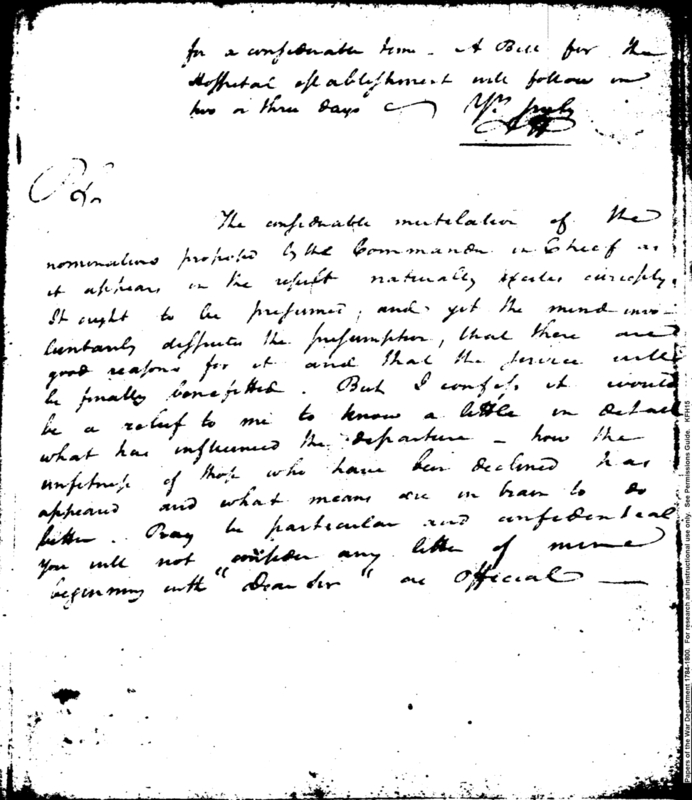 for a considerable time - A Bill for the
Hospital establishment will follow in
two or three days Yrs truly
AH
P. S.
The considerable mutilation of the
nominations proposed by the Commander in Cheief as
it appears in the result naturally excites curiosity.
It ought to be presumed, and yet the mind invo-
luntarily disputes the presumption, that there are
good reasons for it and that the service will
be finally benefitted. But I confess it would
be a relief to me to know a little in detail
what has influenced the departure - how the
unfitness of those who have been declined has
appeared and what means are in train to do
better. Pray be particular and confidential
You will not consider any letter of mine
beginning with "Dear Sir" as Official —
Papers of the War Department 1784-1800. For research and instructional use only. See Permissions Guide. KFH15